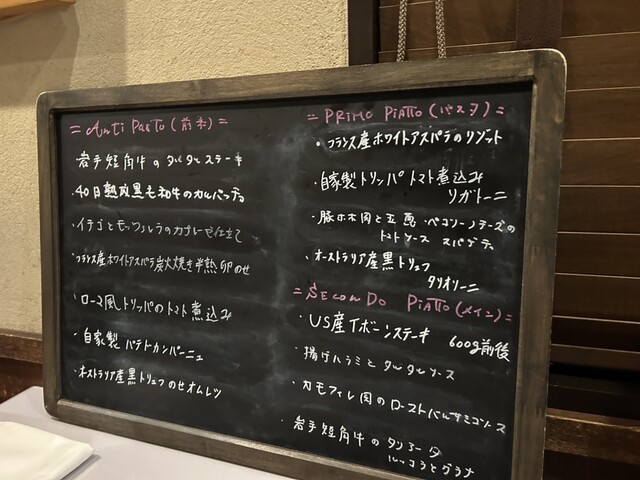 = Anti Pasto (前木) =
岩手短角牛のタルタルステーキ
40日熟成黒毛和牛のカルパッチョ
・イチゴとモッツァレラのカプレーゼ仕立て
・フランス産ホワイトアスパラ炭火焼き半熟卵のせ
・ローマ風トリッパのトマト煮込み
・自家製パテドカンパーニュ
・オーストラリア産黒トリュフのせオムレツ
= PRIMO PIATTO (パスタ) =
・フランス産ホワイトアスパラのリゾット
・自家製トリッパトマト煮込み
リガトーニ
・豚ホホ肉と玉葱・ペコリーノチーズの
トマトソース スパゲティ
・オーストラリア産黒トリュフ
タリオリーニ
= SECONDO PIATTO (メイン) =
・US産Tボーンステーキ 600g前後
・揚げハラミとタルタルソース
・カモフィレ肉のローストバルサミコソース
・岩手短角牛のタリアータ
ルッコラとグラナ